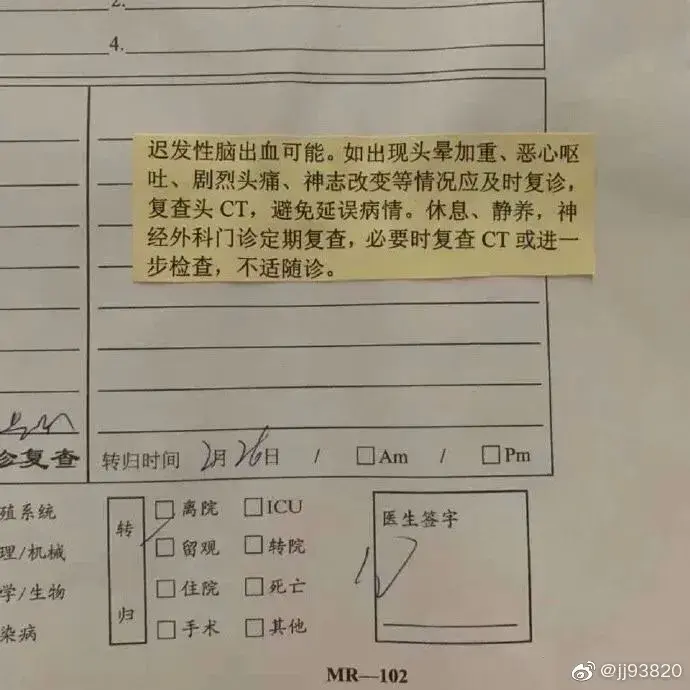 2.
4.
迟发性脑出血可能。如出现头晕加重、恶心呕
吐、剧烈头痛、神志改变等情况应及时复诊，
复查头 CT，避免延误病情。休息、静养，神
经外科门诊定期复查，必要时复查 CT 或进一
步检查，不适随诊。
诊复查
转归时间 2月26日 / □Am / □Pm
殖系统
理/机械
学/生物
染病
转归
□离院 □ICU
□留观 □转院
□住院 □死亡
□手术 □其他
医生签字
MR—102
@jj93820